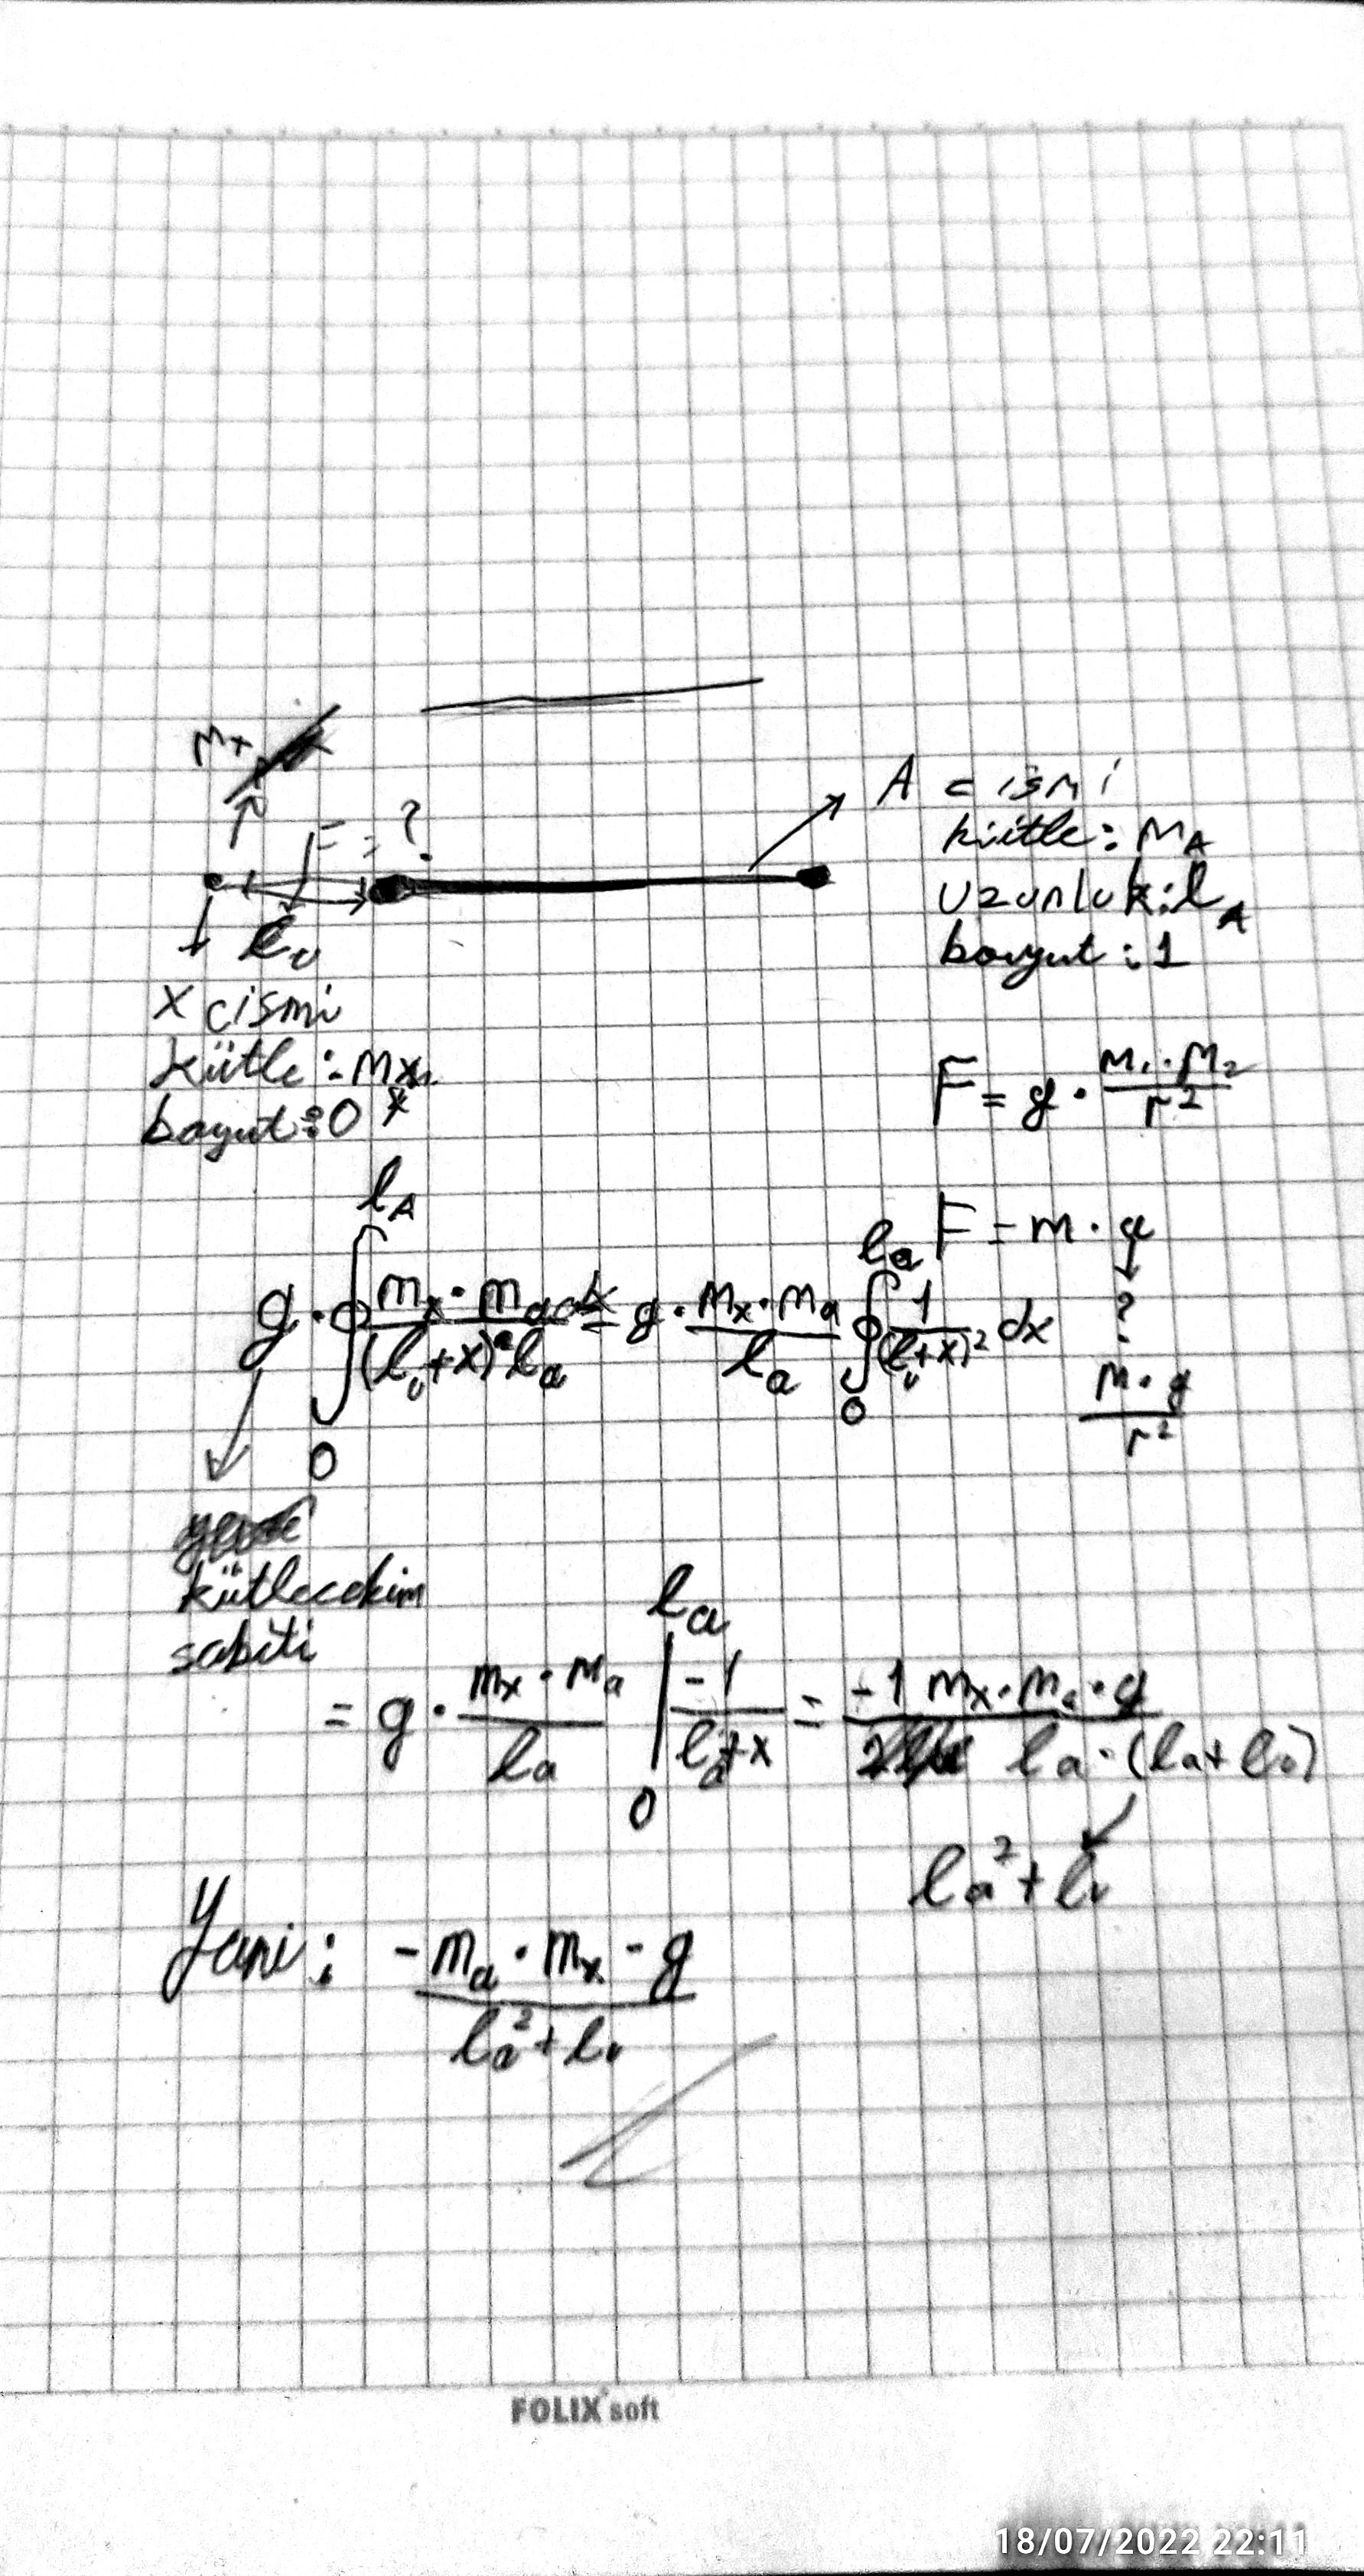 mx
F = ?
l₀
A cismi
kütle: m_A
uzunluk: l_A
boyut: 1
x cismi
kütle: mx
boyut: 0
F = g · m₁·m₂ / r²
F = m · a
?
m·g / r²
g · ∫₀^{l_A} mx·ma dx / (l₀+x)² la = g · mx·ma / la ∫₀^{la} 1 / (l₀+x)² dx
kütleçekim
sabiti
= g · mx·ma / la |₀^{la} -1 / l₀+x = -1 mx·ma·g / la·(la+l₀)
la²+l₀
Yani: -ma·mx·g / la²+l₀
FOLIX soft
18/07/2022 22:11